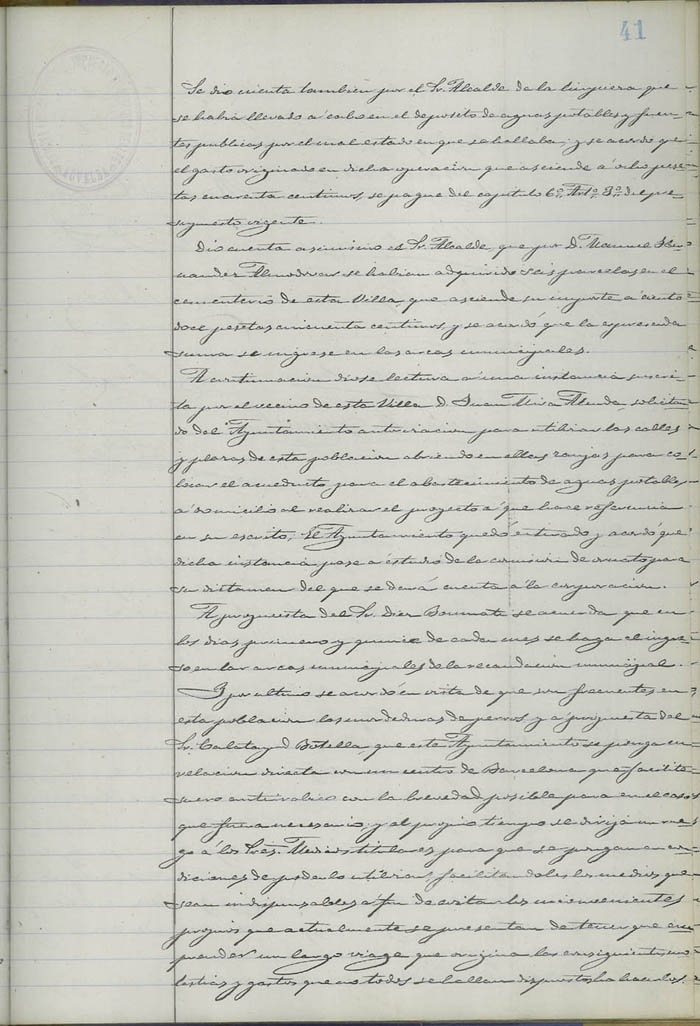 41
Se dio cuenta tambien por el Sr. Alcalde de la limpiera que
se habia llevado á cabo en el deposito de aguas potables y fuen-
tes publicas por el mal estado en que se hallaba; y se acordó que
el gasto originado en dicha operacion que asciende á ocho pese-
tas cuarenta centimos, se pague del capitulo 6º Artº 3º del pre-
supuesto vigente.
Dio cuenta asimismo el Sr. Alcalde, que por D. Manuel Her-
nandez Almodovar se habian adquirido seis parcelas en el
cementerio de esta Villa, que asciende su importe á ciento
doce pesetas cincuenta centimos, y se acordó que la expresada
suma se ingrese en las arcas municipales.
A continuacion diose lectura á una instancia suscri-
ta por el vecino de esta Villa D. Juan Mira solicitan-
do del Ayuntamiento autorizacion para utilizar las calles
y plazas de esta poblacion abriendo en ellas zanjas para co-
locar el acueducto para el abastecimiento de aguas potables
á domicilio al realizar el proyecto á que hace referencia
en su escrito; El Ayuntamiento quedó enterado y acordó que
dicha instancia pase á estudio de la comision de ornato para
su dictamen del que se dará cuenta á la corporacion.
A propuesta del Sr. Diez se acuerda que en
los dias primero y quince de cada mes se haga el ingre-
so en las arcas municipales de la recaudacion municipal.
Y por ultimo se acordó en vista de que son frecuentes en
esta poblacion las mordeduras de perros, y a propuesta del
Sr. Calatayud Botella, que este Ayuntamiento se ponga en
relacion directa con un centro de Barcelona que facilite
suero antirabico con la brevedad posible para en el caso
que fuera necesario; y al propio tiempo se dirija un rue-
go á los Sres. Medicos titulares para que se pongan en con-
diciones de poderlo utilizar, facilitandoles los medios que
sean indispensables á fin de evitar los inconvenientes
propios que actualmente se presentan de tener que em-
prender un largo viage que origina las consiguientes mo-
lestias y gastos que no todos se hallan dispuestos ha hacerlos.